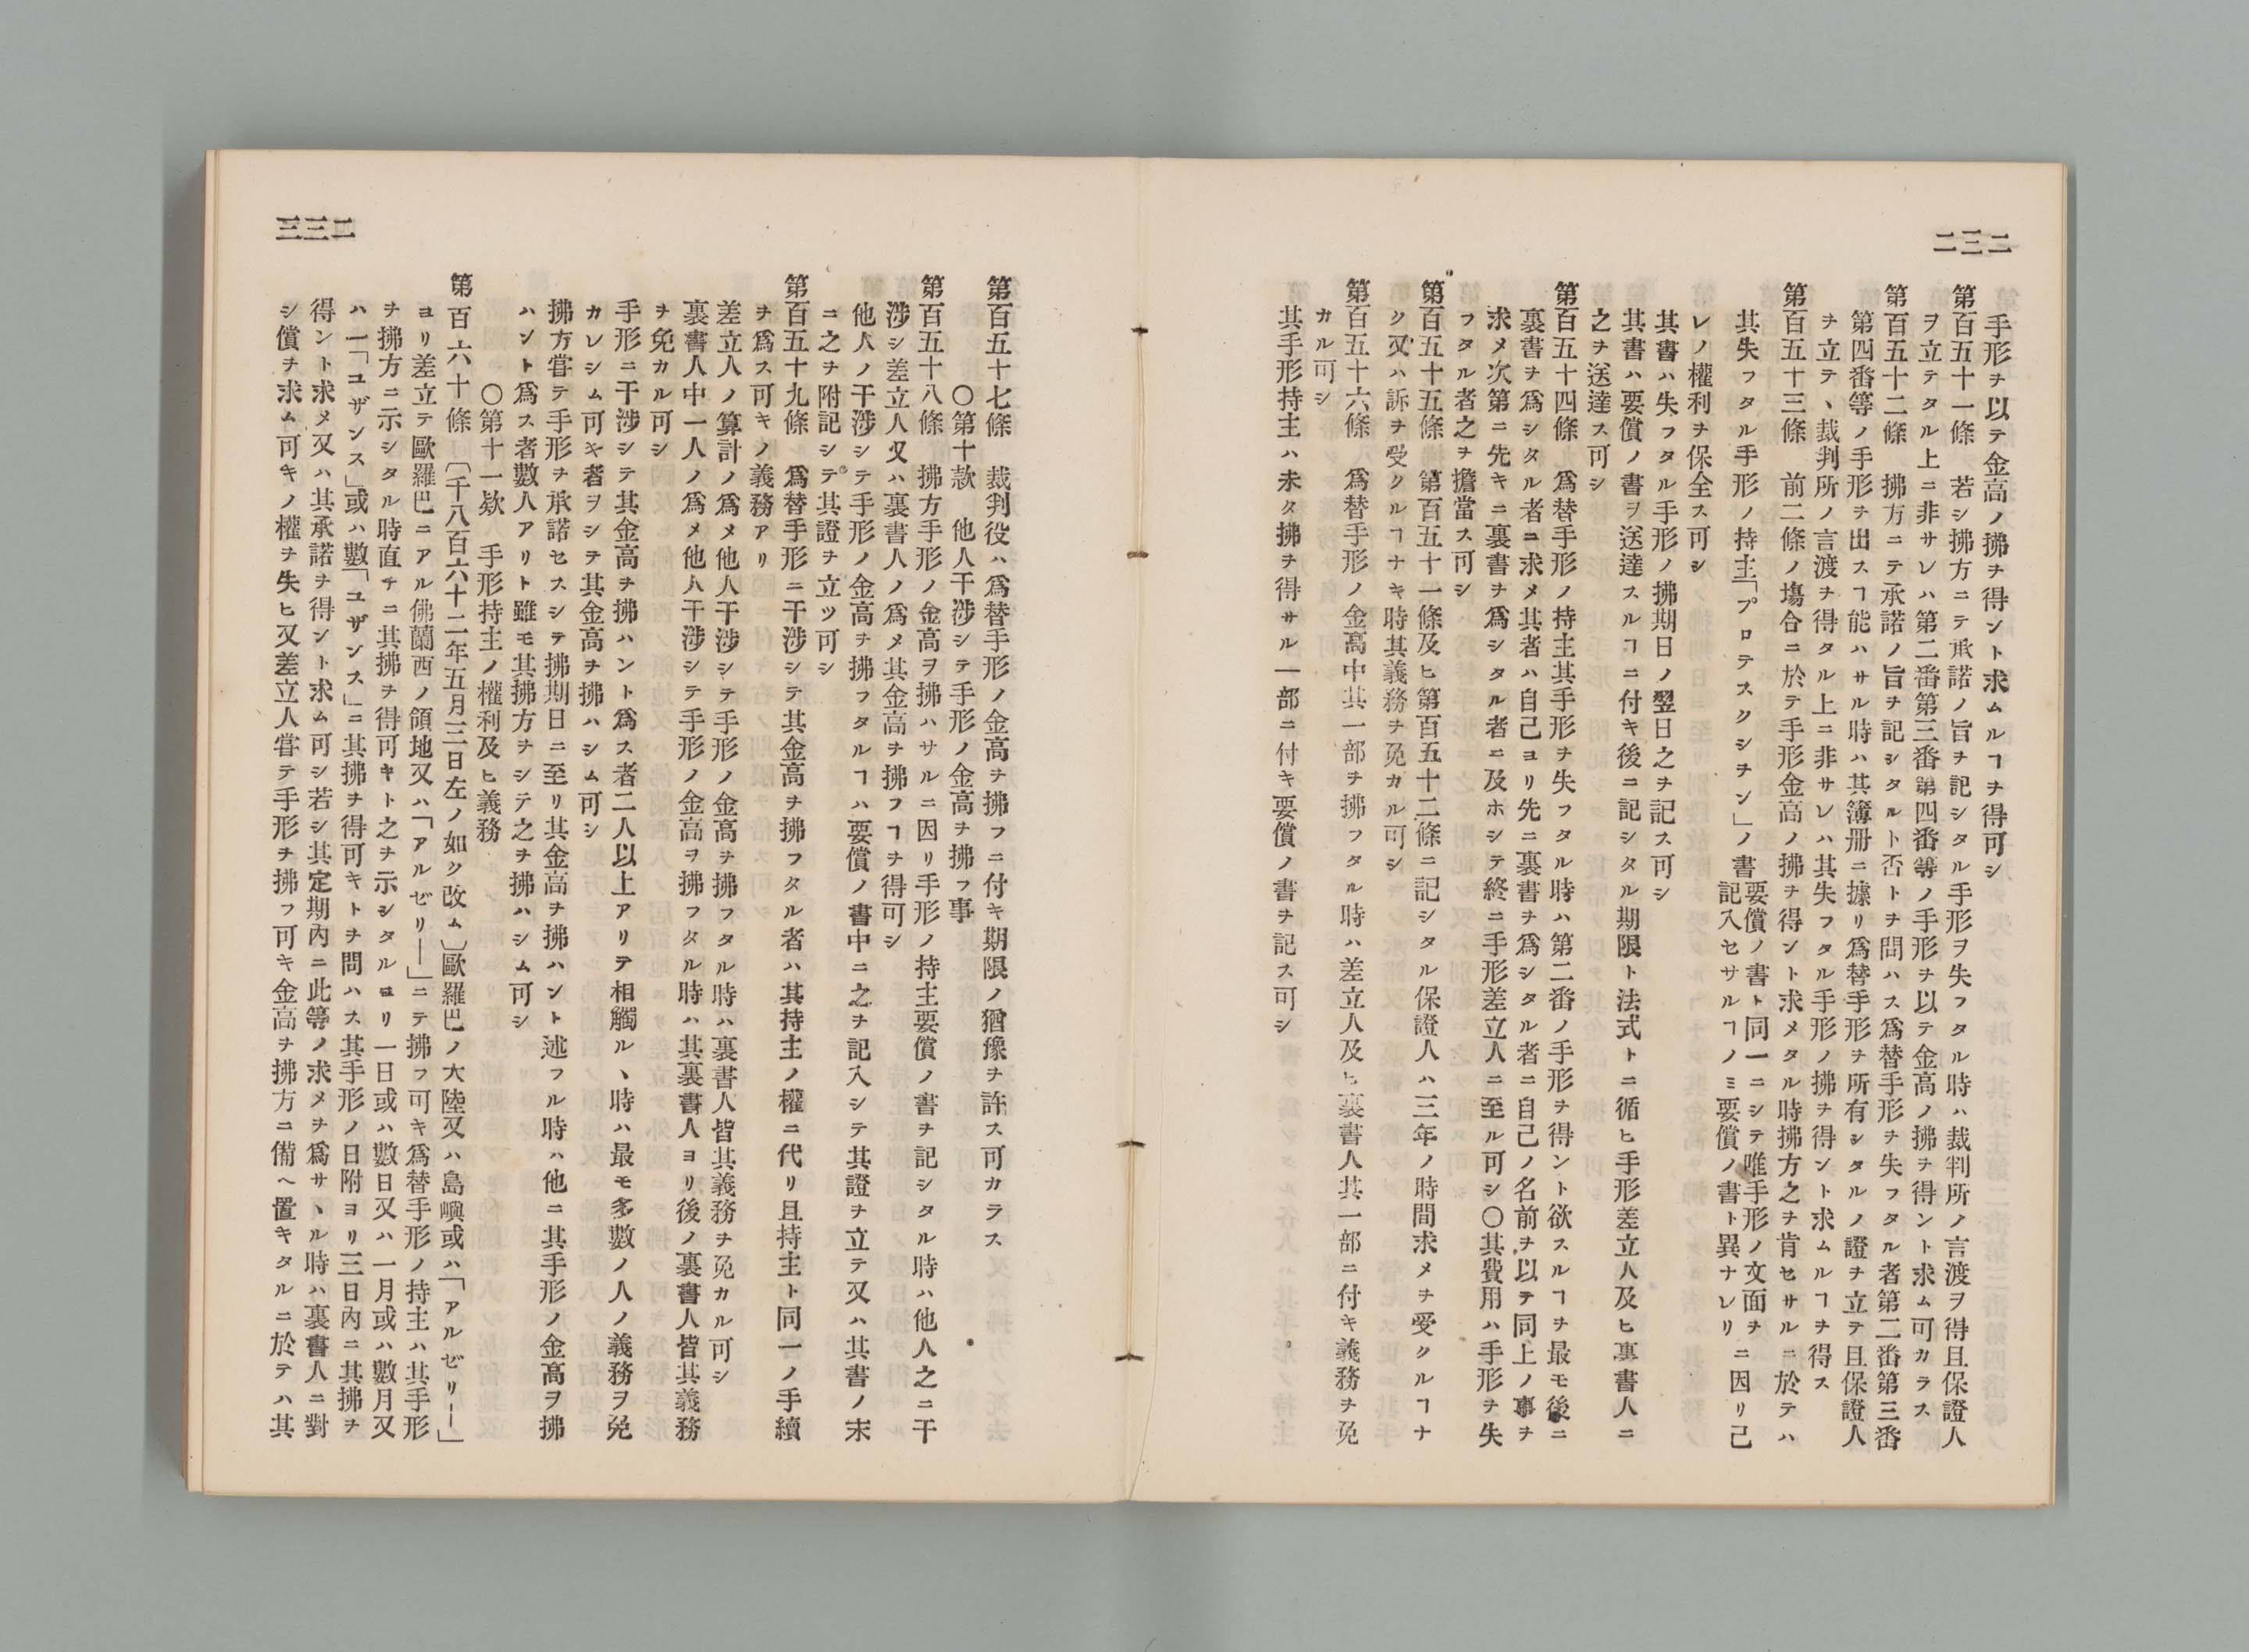 二三二
手形ヲ以テ金高ノ拂ヲ得ント求ムルヿヲ得可シ
第百五十一條　若シ拂方ニテ承諾ノ旨ヲ記シタル手形ヲ失フタル時ハ裁判所ノ言渡ヲ得且保證人
ヲ立テタル上ニ非サレハ第二番第三番第四番等ノ手形ヲ以テ金高ノ拂ヲ得ント求ム可カラス
第百五十二條　拂方ニテ承諾ノ旨ヲ記シタルト否トヲ問ハス爲替手形ヲ失フタル者第二番第三番
第四番等ノ手形ヲ出スヿ能ハサル時ハ其簿册ニ據リ爲替手形ヲ所有シタルノ證ヲ立テ且保證人
ヲ立テ、裁判所ノ言渡ヲ得タル上ニ非サレハ其失フタル手形ノ拂ヲ得ント求ムルヿヲ得ス
第百五十三條　前二條ノ塲合ニ於テ手形金高ノ拂ヲ得ント求メタル時拂方之ヲ肯セサルニ於テハ
其失フタル手形ノ持主「プロテスクシヲン」ノ書要償ノ書ト同一ニシテ唯手形ノ文面ヲ記入セサルヿノミ要償ノ書ト異ナレリニ因リ己
レノ權利ヲ保全ス可シ
其書ハ失フタル手形ノ拂期日ノ翌日之ヲ記ス可シ
其書ハ要償ノ書ヲ送達スルヿニ付キ後ニ記シタル期限ト法式トニ循ヒ手形差立人及ヒ裏書人ニ
之ヲ送達ス可シ
第百五十四條　爲替手形ノ持主其手形ヲ失フタル時ハ第二番ノ手形ヲ得ント欲スルヿヲ最モ後ニ
裏書ヲ爲シタル者ニ求メ其者ハ自己ヨリ先ニ裏書ヲ爲シタル者ニ自己ノ名前ヲ以テ同上ノ事ヲ
求メ次第ニ先キニ裏書ヲ爲シタル者ニ及ホシテ終ニ手形差立人ニ至ル可シ〇其費用ハ手形ヲ失
フタル者之ヲ擔當ス可シ
第百五十五條　第百五十一條及ヒ第百五十二條ニ記シタル保證人ハ三年ノ時間求メヲ受クルヿナ
ク又ハ訴ヲ受クルヿナキ時其義務ヲ免カル可シ
第百五十六條　爲替手形ノ金高中其一部ヲ拂フタル時ハ差立人及ヒ裏書人其一部ニ付キ義務ヲ免
カル可シ
其手形持主ハ未タ拂ヲ得サル一部ニ付キ要償ノ書ヲ記ス可シ
二三三
第百五十七條　裁判役ハ爲替手形ノ金高ヲ拂フニ付キ期限ノ猶豫ヲ許ス可カラス
〇第十款　他人干涉シテ手形ノ金高ヲ拂フ事
第百五十八條　拂方手形ノ金高ヲ拂ハサルニ因リ手形ノ持主要償ノ書ヲ記シタル時ハ他人之ニ干
涉シ差立人又ハ裏書人ノ爲メ其金高ヲ拂フヿヲ得可シ
他人ノ干涉シテ手形ノ金高ヲ拂フタルヿハ要償ノ書中ニ之ヲ記入シテ其證ヲ立テ又ハ其書ノ末
ニ之ヲ附記シテ其證ヲ立ツ可シ
第百五十九條　爲替手形ニ干涉シテ其金高ヲ拂フタル者ハ其持主ノ權ニ代リ且持主ト同一ノ手續
ヲ爲ス可キノ義務アリ
差立人ノ算計ノ爲メ他人干涉シテ手形ノ金高ヲ拂フタル時ハ裏書人皆其義務ヲ免カル可シ
裏書人中一人ノ爲メ他人干涉シテ手形ノ金高ヲ拂フタル時ハ其裏書人ヨリ後ノ裏書人皆其義務
ヲ免カル可シ
手形ニ干涉シテ其金高ヲ拂ハント爲ス者二人以上アリテ相觸ル、時ハ最モ多數ノ人ノ義務ヲ免
カレシム可キ者ヲシテ其金高ヲ拂ハシム可シ
拂方嘗テ手形ヲ承諾セスシテ拂期日ニ至リ其金高ヲ拂ハント述フル時ハ他ニ其手形ノ金高ヲ拂
ハント爲ス者數人アリト雖モ其拂方ヲシテ之ヲ拂ハシム可シ
〇第十一欵　手形持主ノ權利及ヒ義務
第百六十條　〔千八百六十二年五月三日左ノ如ク改ム〕歐羅巴ノ大陸又ハ島嶼或ハ「アルゼリー」
ヨリ差立テ歐羅巴ニアル佛蘭西ノ領地又ハ「アルゼリー」ニテ拂フ可キ爲替手形ノ持主ハ其手形
ヲ拂方ニ示シタル時直チニ其拂ヲ得可キト之ヲ示シタルヨリ一日或ハ數日又ハ一月或ハ數月又
ハ一「ユザンス」或ハ數「ユザンス」ニ其拂ヲ得可キトヲ問ハス其手形ノ日附ヨリ三日內ニ其拂ヲ
得ント求メ又ハ其承諾ヲ得ント求ム可シ若シ其定期內ニ此等ノ求メヲ爲サ丶ル時ハ裏書人ニ對
シ償ヲ求ム可キノ權ヲ失ヒ又差立人嘗テ手形ヲ拂フ可キ金高ヲ拂方ニ備ヘ置キタルニ於テハ其